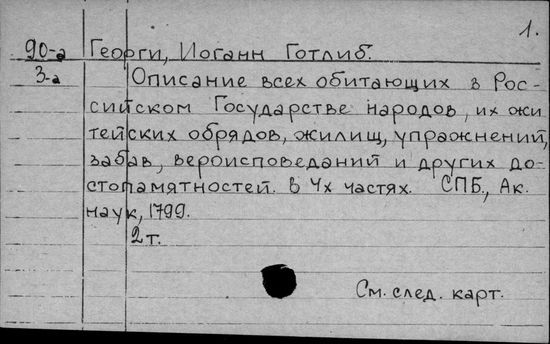 1.
90-а Георги, Иоганн Готлиб.
3-а Описание всех обитающих в Рос-
сийском Государстве народов, их жи
тейских обрядов, жилищ, упражнений,
забав, вероисповеданий и других до-
стопамятностей. в 4х частях. СПБ., Ак.
наук, 1799.
2 т.
См. след. карт.